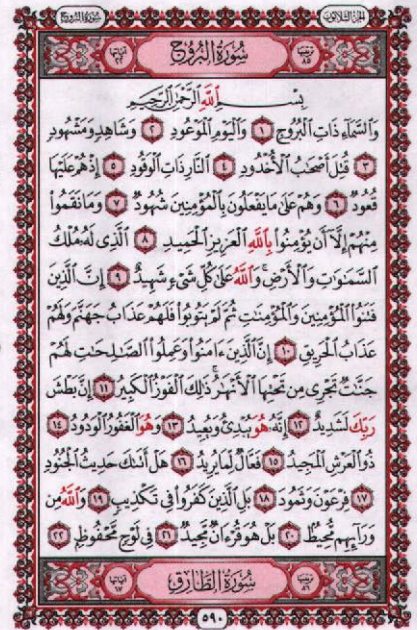 سُورَةُ البُرُوجِ الجزء الثلاثون
ترتيبها ٨٥ سُورَةُ البُرُوجِ آياتها ٢٢
بِسْمِ اللَّهِ الرَّحْمَٰنِ الرَّحِيمِ
وَالسَّمَآءِ ذَاتِ الْبُرُوجِ ١ وَالْيَوْمِ الْمَوْعُودِ ٢ وَشَاهِدٍ وَمَشْهُودٍ
٣ قُتِلَ أَصْحَٰبُ الْأُخْدُودِ ٤ النَّارِ ذَاتِ الْوَقُودِ ٥ إِذْ هُمْ عَلَيْهَا
قُعُودٌ ٦ وَهُمْ عَلَىٰ مَا يَفْعَلُونَ بِالْمُؤْمِنِينَ شُهُودٌ ٧ وَمَا نَقَمُوا
مِنْهُمْ إِلَّآ أَن يُؤْمِنُوا بِاللَّهِ الْعَزِيزِ الْحَمِيدِ ٨ الَّذِى لَهُۥ مُلْكُ
السَّمَٰوَٰتِ وَالْأَرْضِ ۚ وَاللَّهُ عَلَىٰ كُلِّ شَىْءٍ شَهِيدٌ ٩ إِنَّ الَّذِينَ
فَتَنُوا الْمُؤْمِنِينَ وَالْمُؤْمِنَٰتِ ثُمَّ لَمْ يَتُوبُوا فَلَهُمْ عَذَابُ جَهَنَّمَ وَلَهُمْ
عَذَابُ الْحَرِيقِ ١٠ إِنَّ الَّذِينَ ءَامَنُوا وَعَمِلُوا الصَّٰلِحَٰتِ لَهُمْ
جَنَّٰتٌ تَجْرِى مِن تَحْتِهَا الْأَنْهَٰرُ ۚ ذَٰلِكَ الْفَوْزُ الْكَبِيرُ ١١ إِنَّ بَطْشَ
رَبِّكَ لَشَدِيدٌ ١٢ إِنَّهُۥ هُوَ يُبْدِئُ وَيُعِيدُ ١٣ وَهُوَ الْغَفُورُ الْوَدُودُ ١٤
ذُو الْعَرْشِ الْمَجِيدُ ١٥ فَعَّالٌ لِّمَا يُرِيدُ ١٦ هَلْ أَتَىٰكَ حَدِيثُ الْجُنُودِ
١٧ فِرْعَوْنَ وَثَمُودَ ١٨ بَلِ الَّذِينَ كَفَرُوا فِى تَكْذِيبٍ ١٩ وَاللَّهُ مِن
وَرَآئِهِم مُّحِيطٌ ٢٠ بَلْ هُوَ قُرْءَانٌ مَّجِيدٌ ٢١ فِى لَوْحٍ مَّحْفُوظٍ ٢٢
ترتيبها ٨٦ سُورَةُ الطَّارِقِ آياتها ١٧
٥٩٠